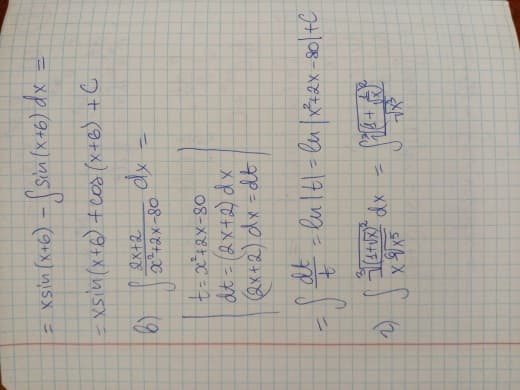 = x sin(x+6) - ∫ sin(x+6) dx =
= x sin(x+6) + cos(x+6) + C
в) ∫ (2x+2)/(x²+2x-80) dx =
| t = x²+2x-80 |
| dt = (2x+2) dx |
| (2x+2) dx = dt |
= ∫ dt/t = ln|t| = ln|x²+2x-80| + C
г) ∫ ∛((1+√x)²)/(x ⁶√(x⁵)) dx = ∫ ∛((1+1/√x)²)/√(x³)